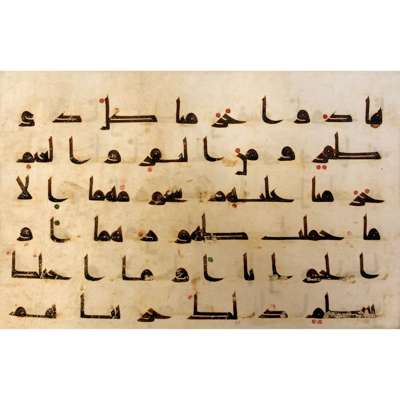 هادوا حرمنا كل ذي
ظفر ومن البقر والغنم
حرمنا عليهم شحومهما الا
ما حملت ظهورهما او
الحوايا او ما اختلط
بعظم ذلك جزيناهم